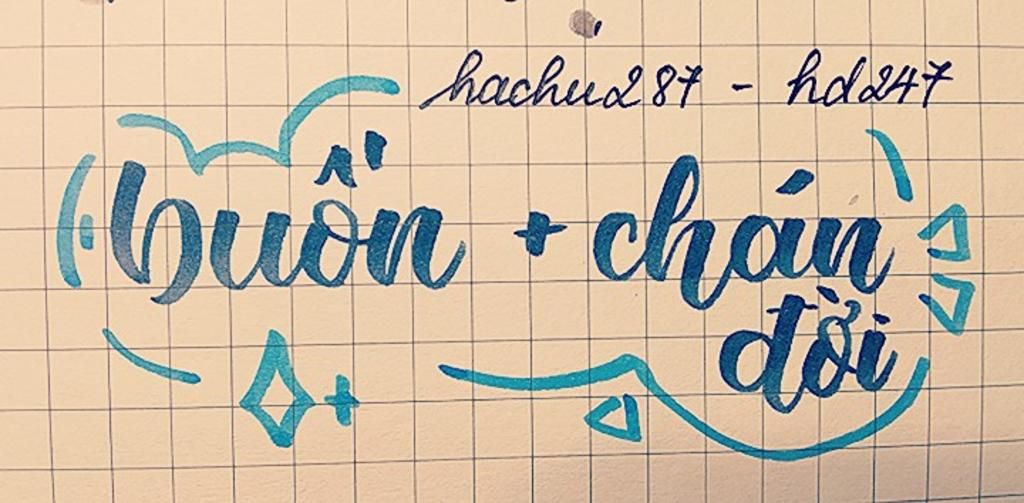 hachu287 - hd247
buồn + chán
đời